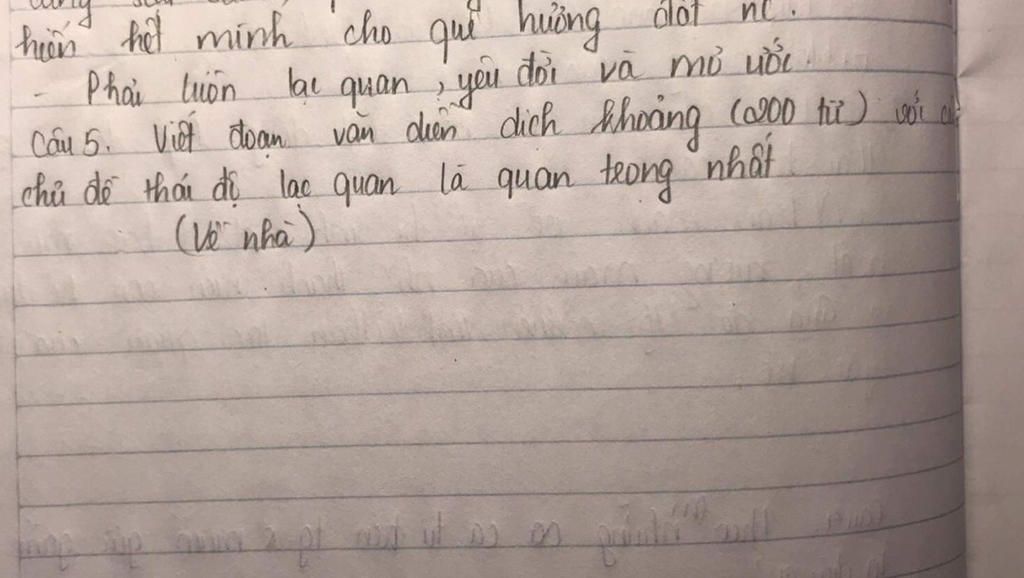 hiến hết mình cho quê hương đất nc.
- Phải luôn lạc quan, yêu đời và mơ ước.
Câu 5. Viết đoạn văn diễn dịch khoảng (200 từ) với
chủ đề thái độ lạc quan là quan trong nhất
(Về nhà)